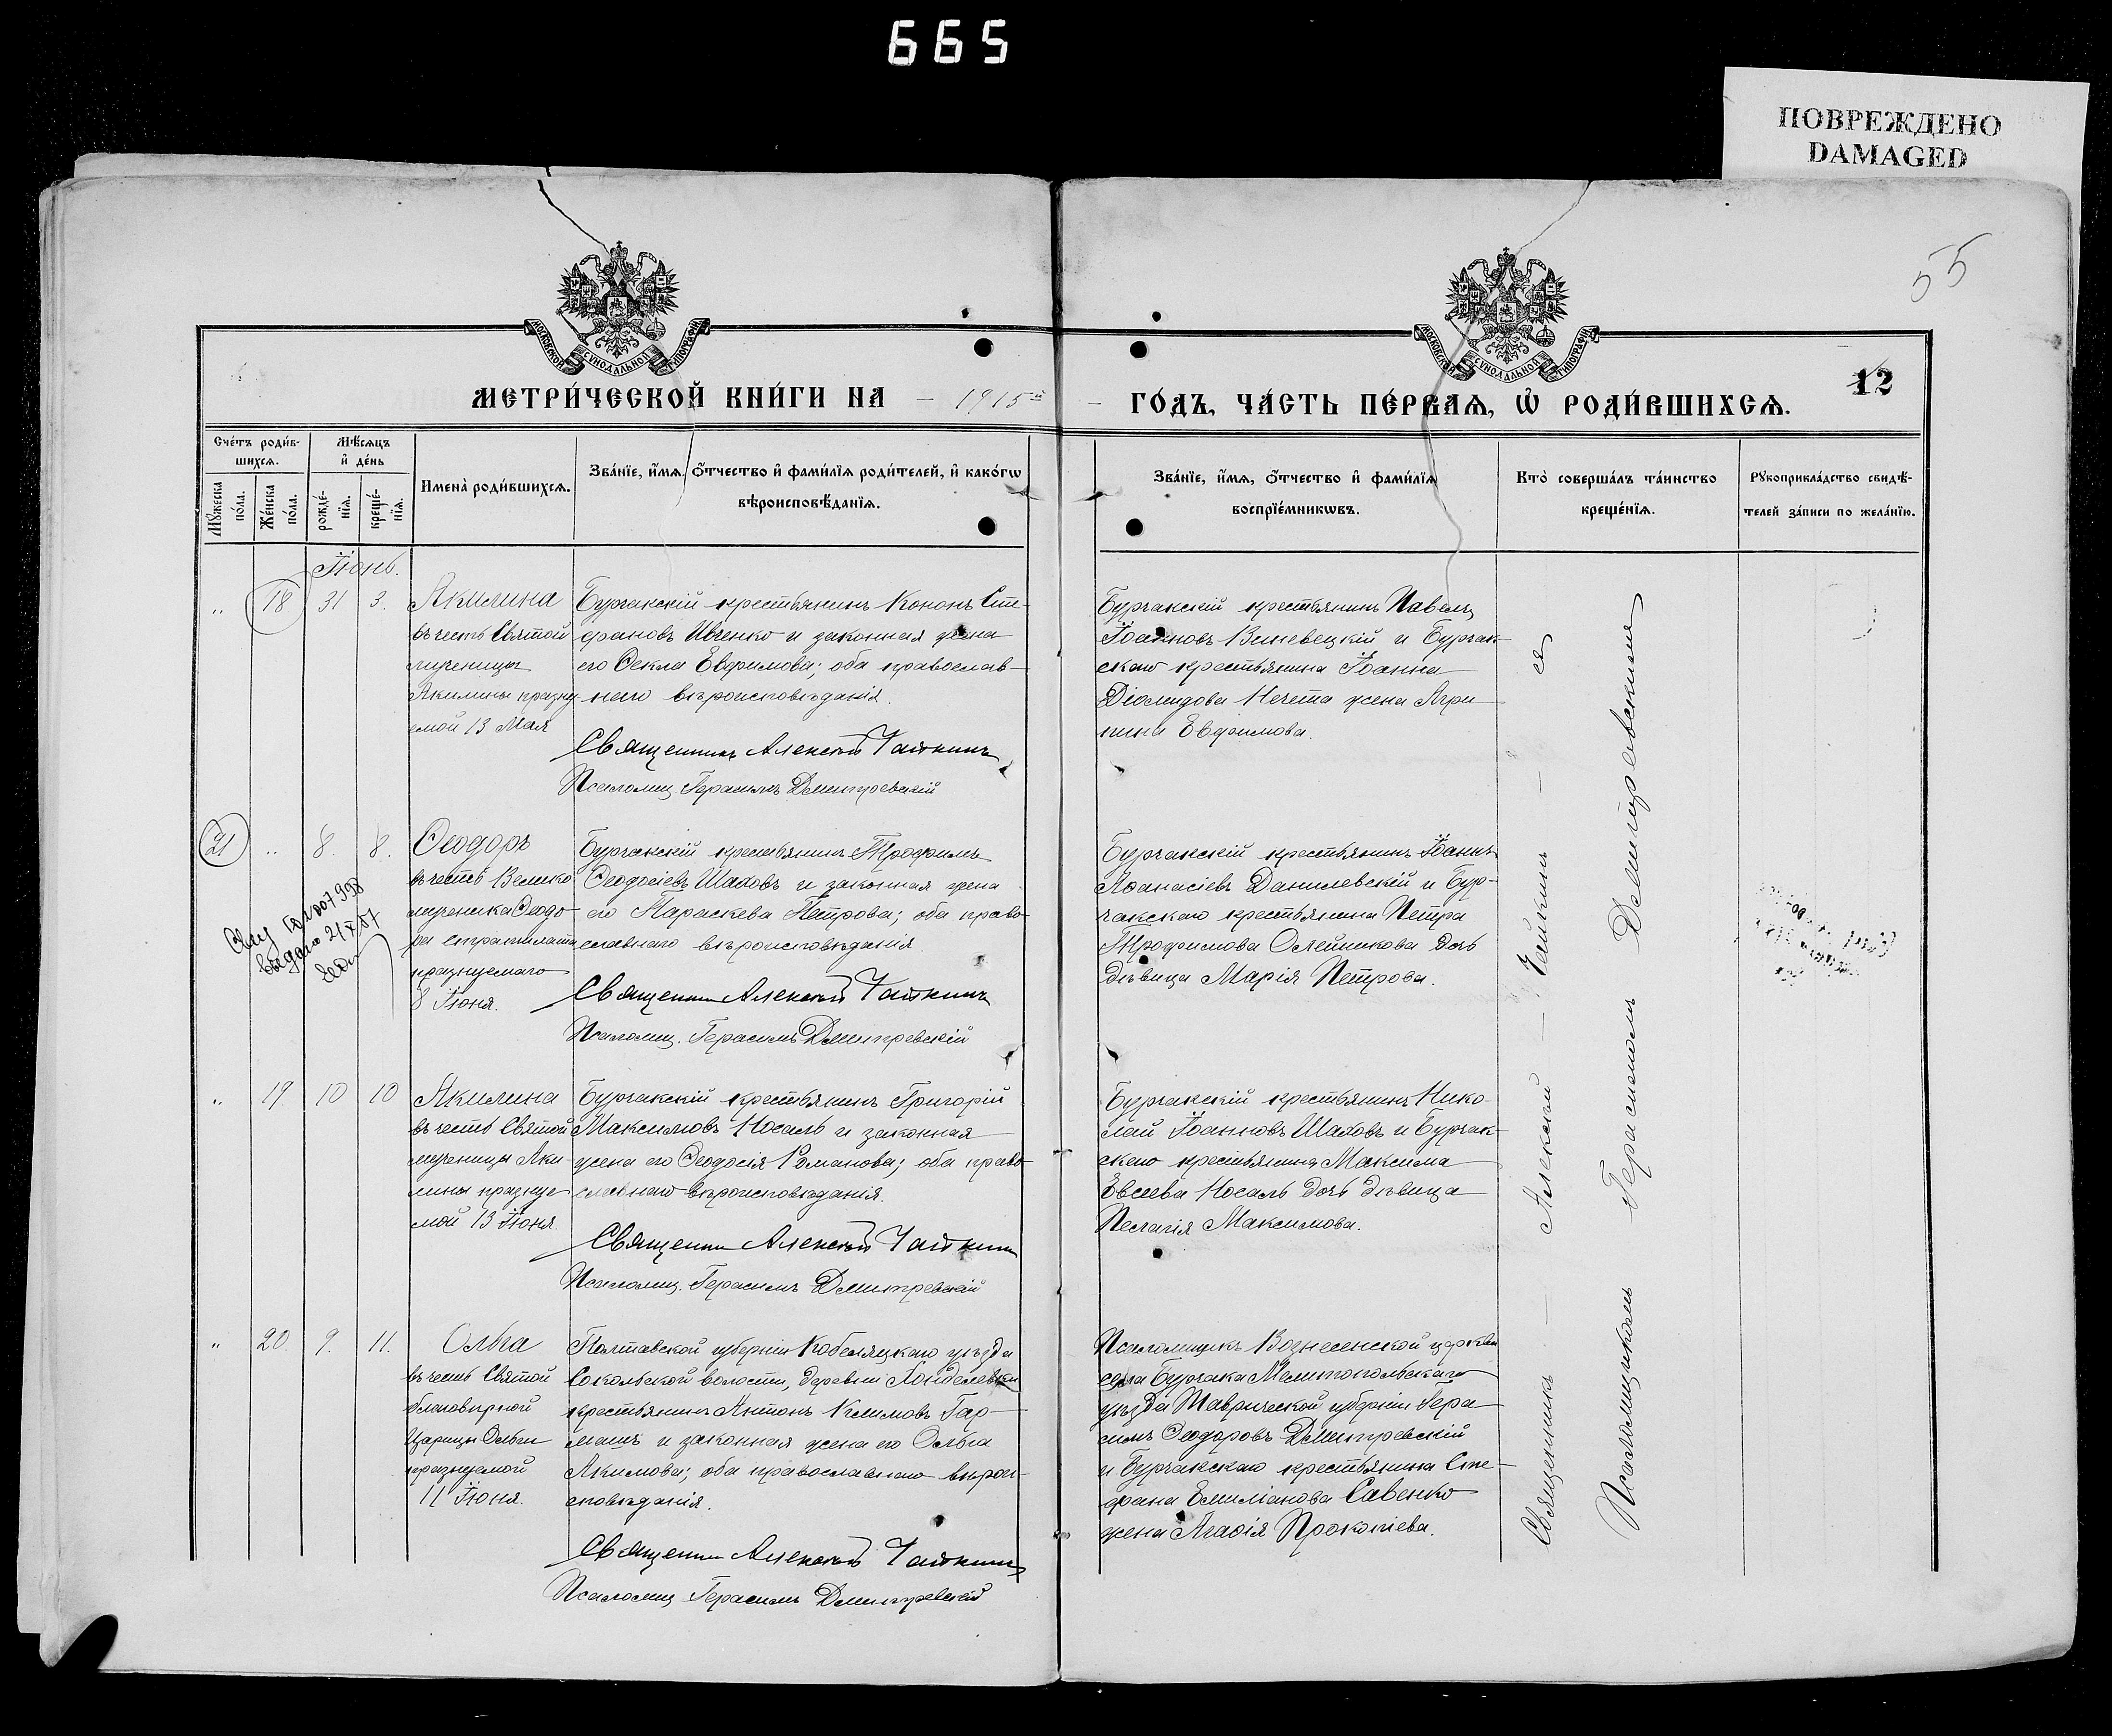 665
ПОВРЕЖДЕНО
DAMAGED
55
МОСКОВСКОЙ СѴНОДАЛЬНОЙ ТИПОГРАФІИ
МОСКОВСКОЙ СѴНОДАЛЬНОЙ ТИПОГРАФІИ
МЕТРИ́ЧЕСКОЙ КНИ́ГИ НА – 1915й –
ГО́ДЪ, ЧА́СТЬ ПЕ́РВАѦ, Ѡ҆ РОДИ́ВШИХСѦ.
12
Сче́тъ роди́в-
шихсѧ.
Мѣ́сѧцъ
и҆ де́нь
Мꙋ́жеска
по́ла.
Же́нска
по́ла.
рожде́-
нїѧ.
креще́-
нїѧ.
И҆мена̀ роди́вшихсѧ.
Зва́нїе, и҆́мѧ, ѻ҆́тчество и҆ фами́лїѧ роди́телей, и҆ како́гѡ
вѣроисповѣ́данїѧ.
Зва́нїе, и҆́мѧ, ѻ҆́тчество и҆ фами́лїѧ
воспрїе́мникѡвъ.
Кто̀ соверша́лъ та́инство
креще́нїѧ.
Рꙋкоприкла́дство свидѣ́-
телей за́писи по жела́нїю.
Іюнь.
„ 18 31 3.
Акилина
въ честь Святой
мученицы
Акилины празну-
емой 13 Мая
Бурчакскій крестьянинъ Кононъ Сте-
фановъ Ивченко и законная жена
его Ѳекла Евфимова; оба православ-
наго вѣроисповѣданія.
Священникъ Алексѣй Чайкинъ
Псаломщ. Герасимъ Дмитревскій
Бурчакскій крестьянинъ Павелъ
Іоанновъ Вишевецкій и Бурчак-
скаго крестьянина Іоанна
Діомидова Нечета жена Агри-
пина Евфимова.
21 „ 8. 8.
Ѳеодоръ
въ честь Велико
мученика Ѳеодо-
ра Стратилата
празнуемаго
8 Іюня.
выдано
Бурчакскій крестьянинъ Трофимъ
Ѳеодосіевъ Шаховъ и законная жена
его Параскева Петрова; оба право-
славнаго вѣроисповѣданія
Священник Алексѣй Чайкинъ
Псаломщ. Герасимъ Дмитревскій
Бурчакскій крестьянинъ Іоаннъ
Аѳанасіевъ Данилевскій и Бур-
чакскаго крестьянина Петра
Трофимова Олейникова дочь
дѣвица Марія Петрова.
„ 19. 10 10
Акилина
въ честь Святой
мученицы Аки-
лины празнуе
мой 13 Іюня.
Бурчакскій крестьянинъ Григорій
Максимовъ Носаль и законная
жена его Ѳеодосія Романова; оба право-
славнаго вѣроисповѣданія.
Священник Алексѣй Чайкин
Псаломщ. Герасимъ Дмитревскій
Бурчакскій крестьянинъ Нико-
лай Іоанновъ Шаховъ и Бурчак-
скаго крестьянина Максима
Евсеева Носаль дочь дѣвица
Пелагія Максимова.
„ 20. 9. 11.
Ольга
въ честь Святой
благовѣрной
Царицы Ольги
празнуемой
11 Іюня.
Полтавской губерніи Кобеляцкаго уѣзда
Сокольской волости, деревни
крестьянинъ Антонъ Климовъ Гар-
машъ и законная жена его Ольга
Акимова; оба православнаго вѣрои-
сповѣданія.
Священник Алексѣй Чайкинъ
Псаломщ Герасимъ Дмитревскій
Псаломщикъ Вознесенской церкви
села Бурчака Мелитопольскаго
уѣзда Таврической губерніи Гера-
симъ Ѳеодоровъ Дмитревскій
и Бурчакскаго крестьянина Сте-
фана Емиліанова Савенко
жена Агаѳія Прокопіева.
Священникъ – Алексѣй – Чайкинъ – съ
Псаломщикомъ Герасимомъ Дмитревскимъ